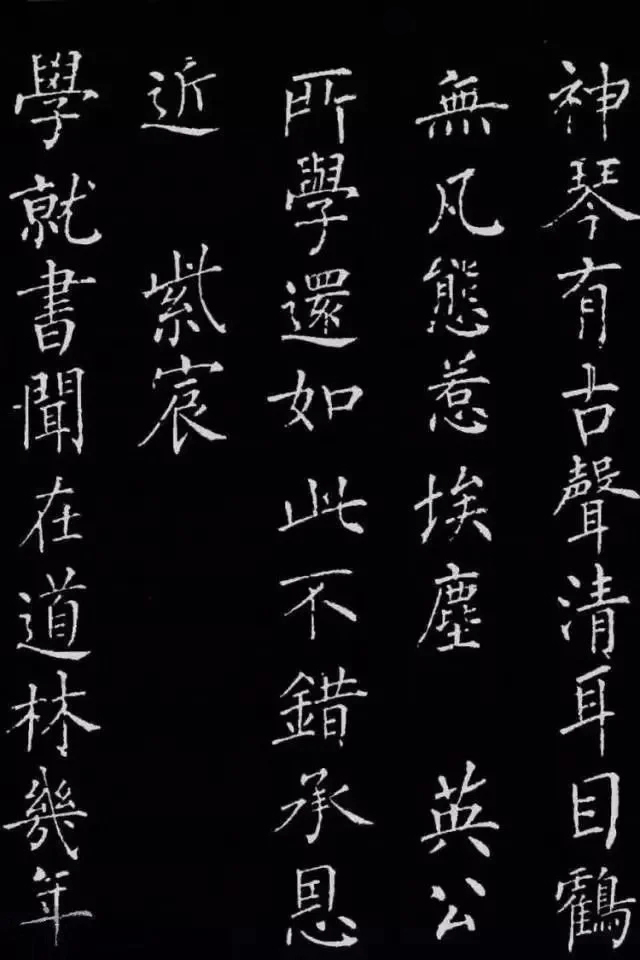 神琴有古聲清耳目鶴
無凡態惹埃塵　英公
所學還如此不錯承恩
近　紫宸
學就書聞在道林幾年